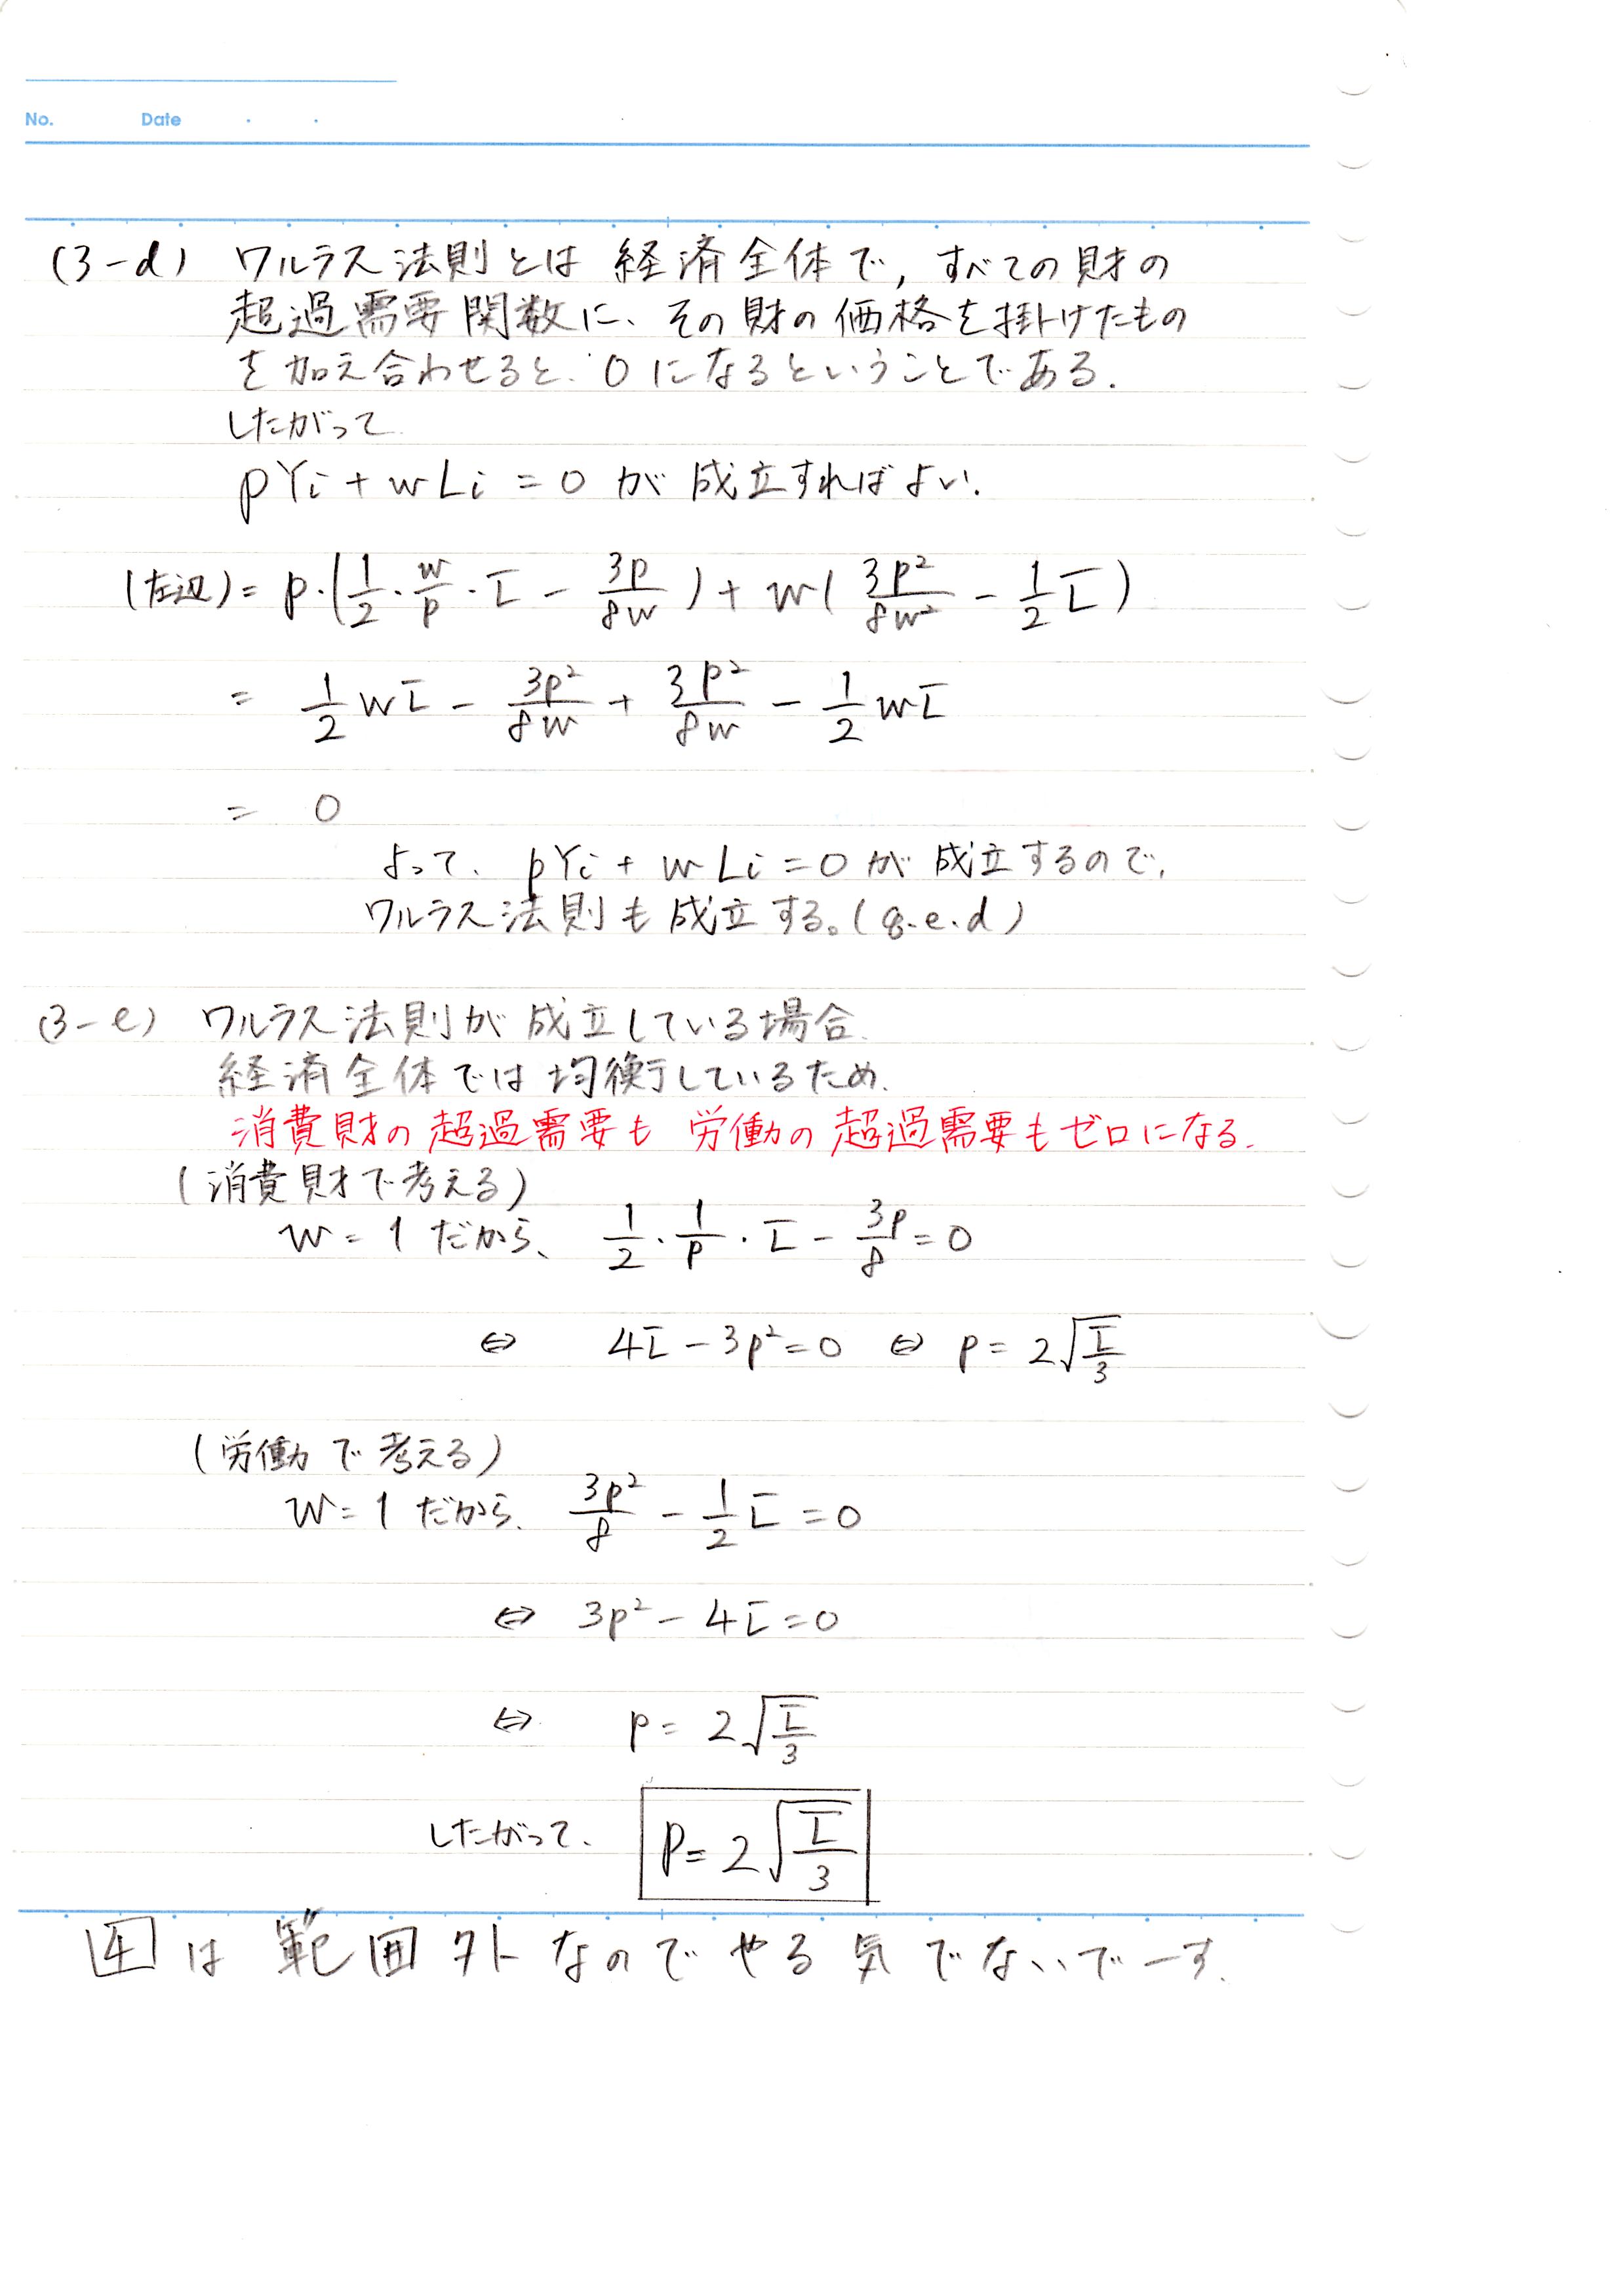 No. Date
(3-d) ワルラス法則とは 経済全体で, すべての財の
超過需要関数に、その財の価格を掛けたもの
を加え合わせると、0になるということである.
したがって
pYi + wLi = 0 が 成立すればよい.
(左辺) = p・(1/2・w/p・L̄ - 3p/8w) + w(3p²/8w² - 1/2 L̄)
= 1/2 wL̄ - 3p²/8w + 3p²/8w - 1/2 wL̄
= 0
よって、pYi + wLi = 0 が 成立するので、
ワルラス法則も成立する。(q.e.d)
(3-e) ワルラス法則が成立している場合、
経済全体では均衡しているため、
消費財の超過需要も 労働の超過需要もゼロになる.
(消費財で考える)
w = 1 だから、 1/2・1/p・L̄ - 3p/8 = 0
⇔ 4L̄ - 3p² = 0 ⇔ p = 2√(L̄/3)
(労働で考える)
w = 1 だから、 3p²/8 - 1/2 L̄ = 0
⇔ 3p² - 4L̄ = 0
⇔ p = 2√(L̄/3)
したがって、 p = 2√(L̄/3)
4 は 範囲外なのでやる気でないでーす.